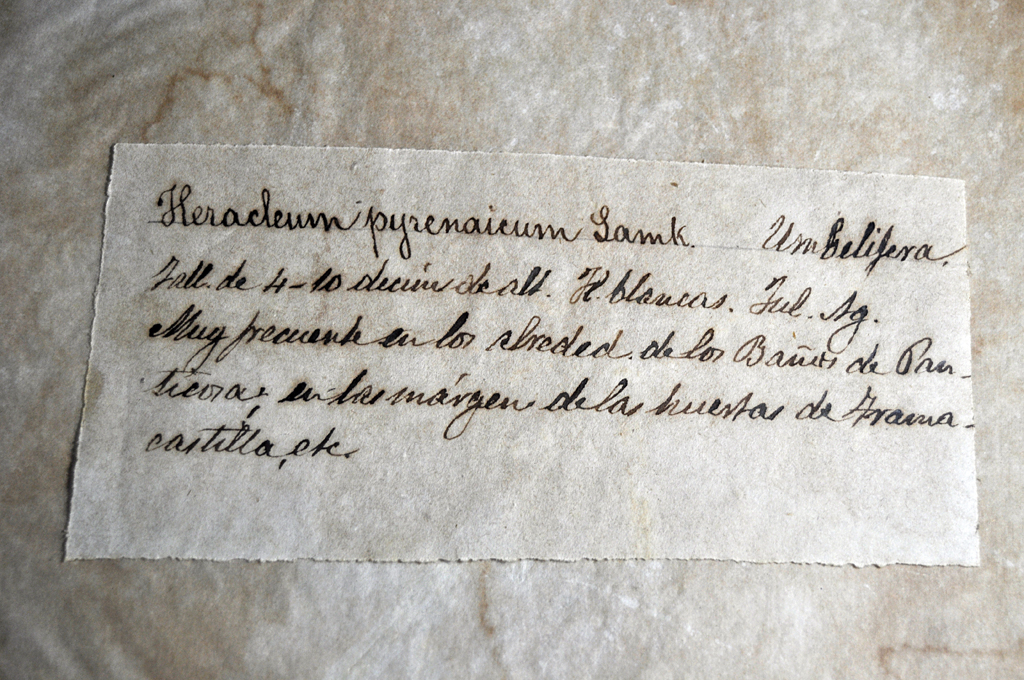 Heracleum pyrenaicum Lamk. Umbelifera.
Tall. de 4-10 decím de alt. Fl. blancas. Jul. Ag.
Muy frecuente en los alreded. de los Baños de Pan-
ticosa; en las márgen de las huertas de Trama-
castilla, etc.